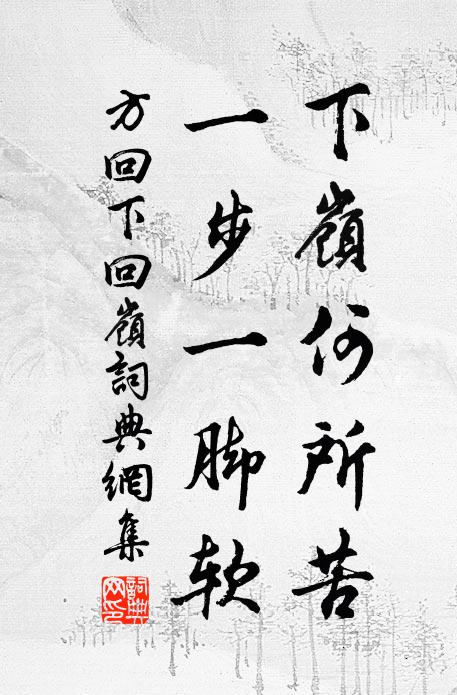 下嶺何所苦
一步一脚软
方回下回嶺詞典網集
詞典網印